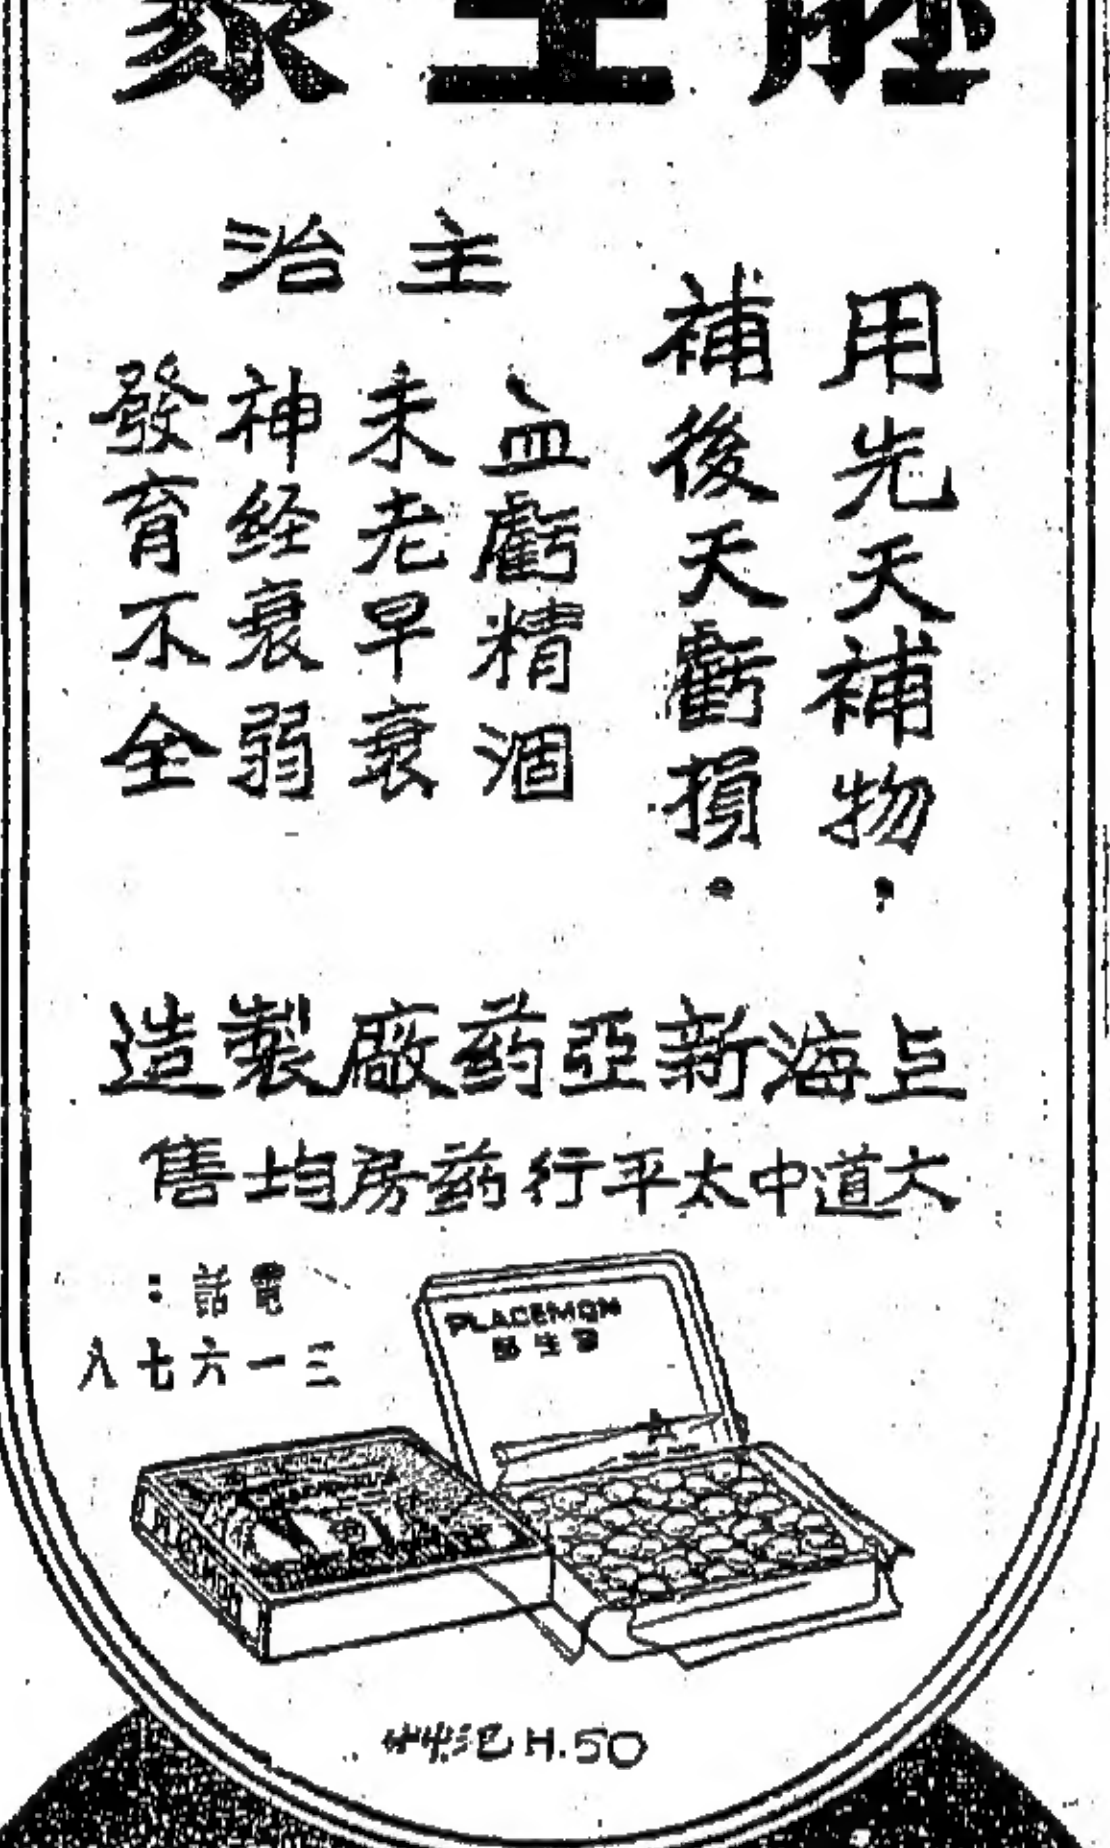 胚生蒙
用先天補物，
補後天虧損．
主治
血虧精涸
未老早衰
神经衰弱
發育不全
上海新亞药廠製造
大道中太平行药房均售
電話：
三一六七八
PLACEMON
胚生蒙
PLACEMON
H.50